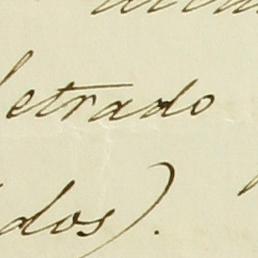 letrado
dos).